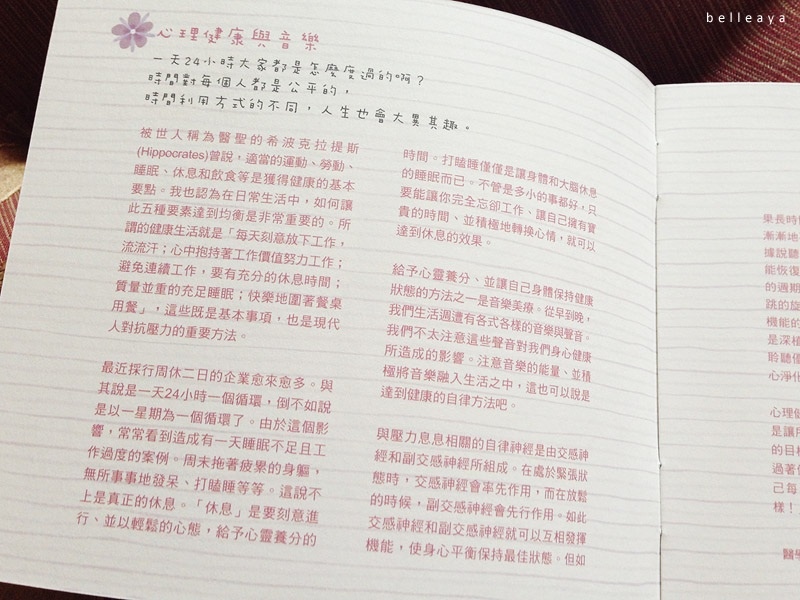 belleaya
心理健康與音樂
一天24小時大家都是怎麼度過的啊？
時間對每個人都是公平的，
時間利用方式的不同，人生也會大異其趣。
被世人稱為醫聖的希波克拉提斯
(Hippocrates)曾說，適當的運動、勞動、
睡眠、休息和飲食等是獲得健康的基本
要點。我也認為在日常生活中，如何讓
此五種要素達到均衡是非常重要的。所
謂的健康生活就是「每天刻意放下工作，
流流汗；心中抱持著工作價值努力工作；
避免連續工作，要有充分的休息時間；
質量並重的充足睡眠；快樂地圍著餐桌
用餐」，這些既是基本事項，也是現代
人對抗壓力的重要方法。
最近採行周休二日的企業愈來愈多。與
其說是一天24小時一個循環，倒不如說
是以一星期為一個循環了。由於這個影
響，常常看到造成有一天睡眠不足且工
作過度的案例。周末拖著疲累的身軀，
無所事事地發呆、打瞌睡等等。這說不
上是真正的休息。「休息」是要刻意進
行、並以輕鬆的心態，給予心靈養分的
時間。打瞌睡僅僅是讓身體和大腦休息
的睡眠而已。不管是多小的事都好，只
要能讓你完全忘卻工作、讓自己擁有寶
貴的時間、並積極地轉換心情，就可以
達到休息的效果。
給予心靈養分、並讓自己身體保持健康
狀態的方法之一是音樂美療。從早到晚，
我們生活週遭有各式各樣的音樂與聲音。
我們不太注意這些聲音對我們身心健康
所造成的影響。注意音樂的能量、並積
極將音樂融入生活之中，這也可以說是
達到健康的自律方法吧。
與壓力息息相關的自律神經是由交感神
經和副交感神經所組成。在處於緊張狀
態時，交感神經會率先作用，而在放鬆
的時候，副交感神經會先行作用。如此
交感神經和副交感神經就可以互相發揮
機能，使身心平衡保持最佳狀態。但如
果長時
漸漸地
據說聽
能恢復
的週期
跳的旋
機能的
是深植
聆聽優
心淨化
心理健
是讓所
的目標
過著作
己每
樣！
醫學